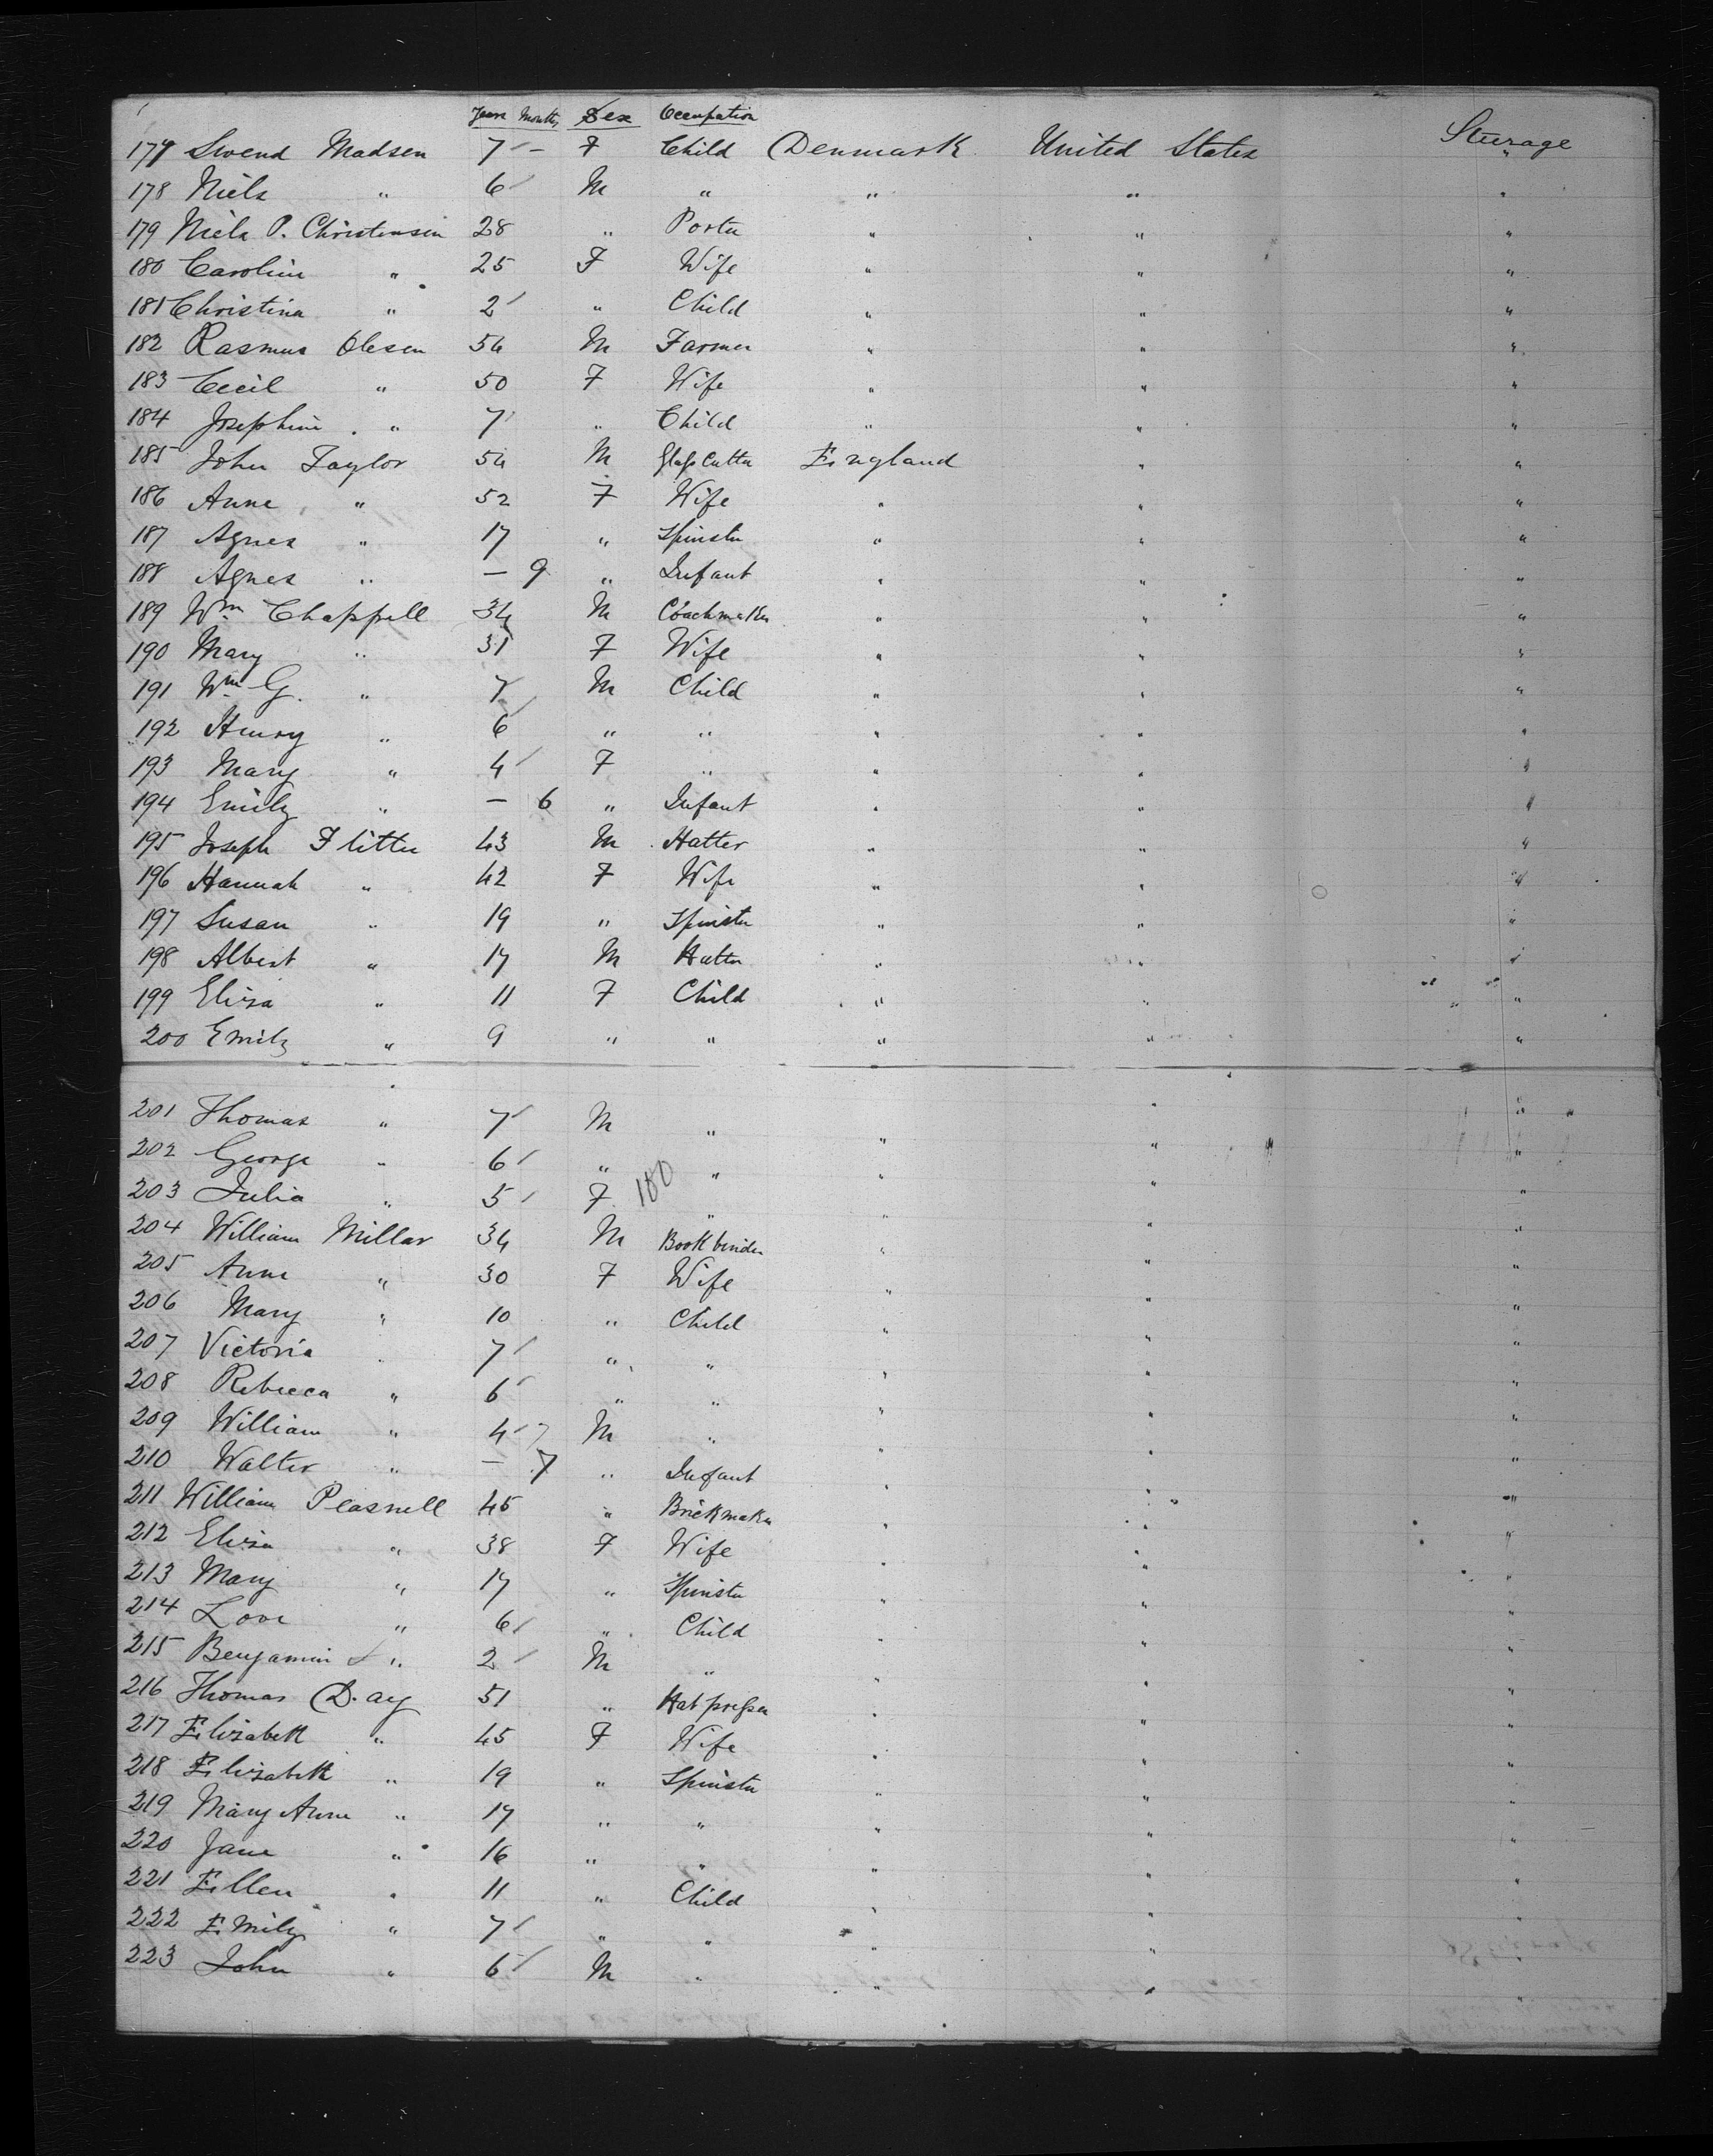 Years Months Sex Occupation
177 Swend Madsen 7 - F Child Denmark United States Steerage
178 Niels " 6 M " " " "
179 Niels P. Christensen 28 " Porter " " "
180 Caroline " 25 F Wife " " "
181 Christina " 2 " Child " " "
182 Rasmus Olesen 54 M Farmer " " "
183 Cecil " 50 F Wife " " "
184 Josephine " 7 " Child " " "
185 John Taylor 54 M Glass Cutter England " "
186 Anne " 52 F Wife " " "
187 Agnes " 17 " Spinster " " "
188 Agnes " - 9 " Infant " " "
189 Wm Chappell 34 M Coachmaker " " "
190 Mary " 31 F Wife " " "
191 Wm G. " 7 M Child " " "
192 Henry " 6 " " " " "
193 Mary " 4 F " " " "
194 Emily " - 6 " Infant " " "
195 Joseph Flitter 43 M Hatter " " "
196 Hannah " 42 F Wife " " "
197 Susan " 19 " Spinster " " "
198 Albert " 17 M Hatter " " "
199 Eliza " 11 F Child " " "
200 Emily " 9 " " " " "
201 Thomas " 7 M " " " "
202 George " 6 " " " " "
203 Julia " 5 F 100 " " " "
204 William Millar 34 M Bookbinder " " "
205 Anne " 30 F Wife " " "
206 Mary " 10 " Child " " "
207 Victoria " 7 " " " " "
208 Rebecca " 6 " " " " "
209 William " 4 M " " " "
210 Walter " - 7 " Infant " " "
211 William Peasnell 45 " Brickmaker " " "
212 Eliza " 38 F Wife " " "
213 Mary " 17 " Spinster " " "
214 Love " 6 " Child " " "
215 Benjamin " 2 M " " " "
216 Thomas Day 51 " Hat presser " " "
217 Elizabeth " 45 F Wife " " "
218 Elizabeth " 19 " Spinster " " "
219 Mary Anne " 17 " " " " "
220 Jane " 16 " " " " "
221 Ellen " 11 " Child " " "
222 Emily " 7 " " " " "
223 John " 6 M " " " "